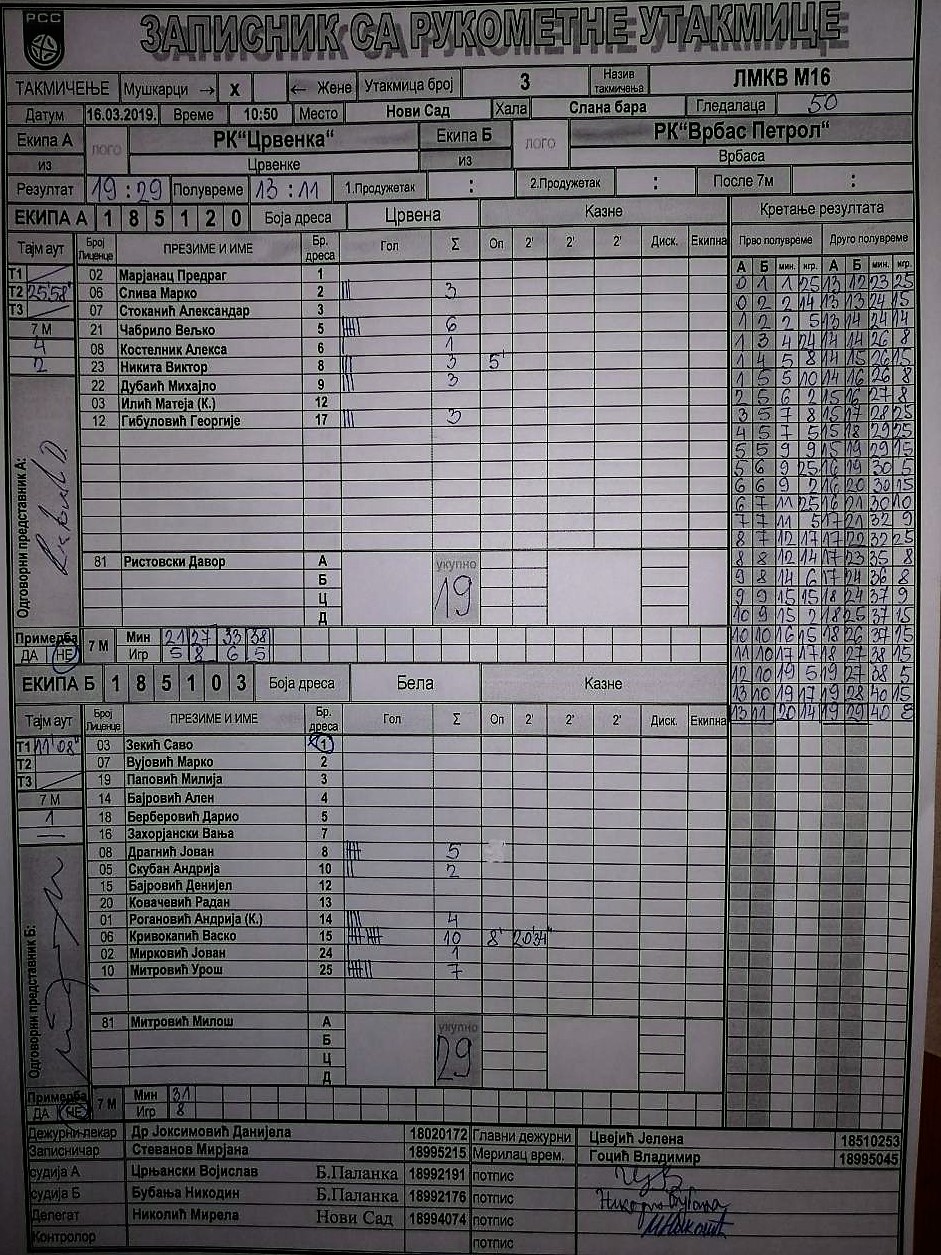 РСС
ЗАПИСНИК СА РУКОМЕТНЕ УТАКМИЦЕ
ТАКМИЧЕЊЕ Мушкарци → x ← Жене Утакмица број 3 Назив такмичења ЛМКВ М16
Датум 16.03.2019. Време 10:50 Место Нови Сад Хала Слана бара Гледалаца 50
Екипа А ЛОГО РК"Црвенка" Екипа Б ЛОГО РК"Врбас Петрол"
из Црвенке из Врбаса
Резултат 19:29 Полувреме 13:11 1.Продужетак : 2.Продужетак : После 7м :
ЕКИПА А 1 8 5 1 2 0 Боја дреса Црвена Казне Кретање резултата
Тајм аут Број Лиценце ПРЕЗИМЕ И ИМЕ Бр. дреса Гол Σ Оп 2' 2' 2' Диск. Екипна Прво полувреме Друго полувреме
А Б мин. игр. А Б мин. игр.
Т1 02 Марјанац Предраг 1 0 1 1 25 13 12 23 25
Т2 25'58" 06 Слива Марко 2 ||| 3 0 2 2 14 13 13 24 15
Т3 07 Стоканић Александар 3 1 2 2 5 13 14 24 14
7 М 21 Чабрило Вељко 5 6 1 3 4 24 14 14 26 8
4 08 Костелник Алекса 6 | 1 1 4 5 8 14 15 26 15
2 23 Никита Виктор 8 ||| 3 5' 1 5 5 10 14 16 26 8
22 Дубаић Михајло 9 ||| 3 2 5 6 2 15 16 27 8
03 Илић Матеја (К.) 12 3 5 7 8 15 17 28 25
12 Гибуловић Георгије 17 ||| 3 4 5 7 5 15 18 29 25
5 5 9 9 15 19 29 15
5 6 9 25 16 19 30 5
6 6 9 2 16 20 30 15
6 7 11 25 16 21 30 10
7 7 11 5 17 21 32 9
8 7 12 17 17 22 32 25
Одговорни представник А:
81 Ристовски Давор А укупно 19 8 8 12 14 17 23 35 8
Б 9 8 14 6 17 24 36 8
Ц 9 9 15 15 18 24 37 9
Д 10 9 15 2 18 25 37 15
Примедба 7 М Мин 21 27 33 38 10 10 16 15 18 26 37 15
ДА НЕ Игр 5 8 6 5 11 10 17 17 18 27 38 15
ЕКИПА Б 1 8 5 1 0 3 Боја дреса Бела Казне 12 10 19 5 19 27 38 5
13 10 19 17 19 28 40 15
Тајм аут Број Лиценце ПРЕЗИМЕ И ИМЕ Бр. дреса Гол Σ Оп 2' 2' 2' Диск. Екипна 13 11 20 14 19 29 40 8
Т1 11'08" 03 Зекић Саво 1
Т2 07 Вујовић Марко 2
Т3 19 Паповић Милија 3
7 М 14 Бајровић Ален 4
1 18 Берберовић Дарио 5
16 Захорјански Вања 7
08 Драгнић Јован 8 5
05 Скубан Андрија 10 || 2
15 Бајровић Денијел 12
20 Ковачевић Радан 13
01 Рогановић Андрија (К.) 14 |||| 4
06 Кривокапић Васко 15 10 8' 20'34"
02 Мирковић Јован 24 | 1
10 Митровић Урош 25 7
Одговорни представник Б:
81 Митровић Милош А укупно 29
Б
Ц
Д
Примедба 7 М Мин 31
ДА НЕ Игр 8
Дежурни-лекар Др Јоксимовић Данијела 18020172 Главни дежурни Цвејић Јелена 18510253
Записничар Стеванов Мирјана 18995215 Мерилац врем. Гоцић Владимир 18995045
судија А Црњански Војислав Б.Паланка 18992191 потпис
судија Б Бубања Никодин Б.Паланка 18992176 потпис
Делегат Николић Мирела Нови Сад 18994074 потпис
Контролор потпис